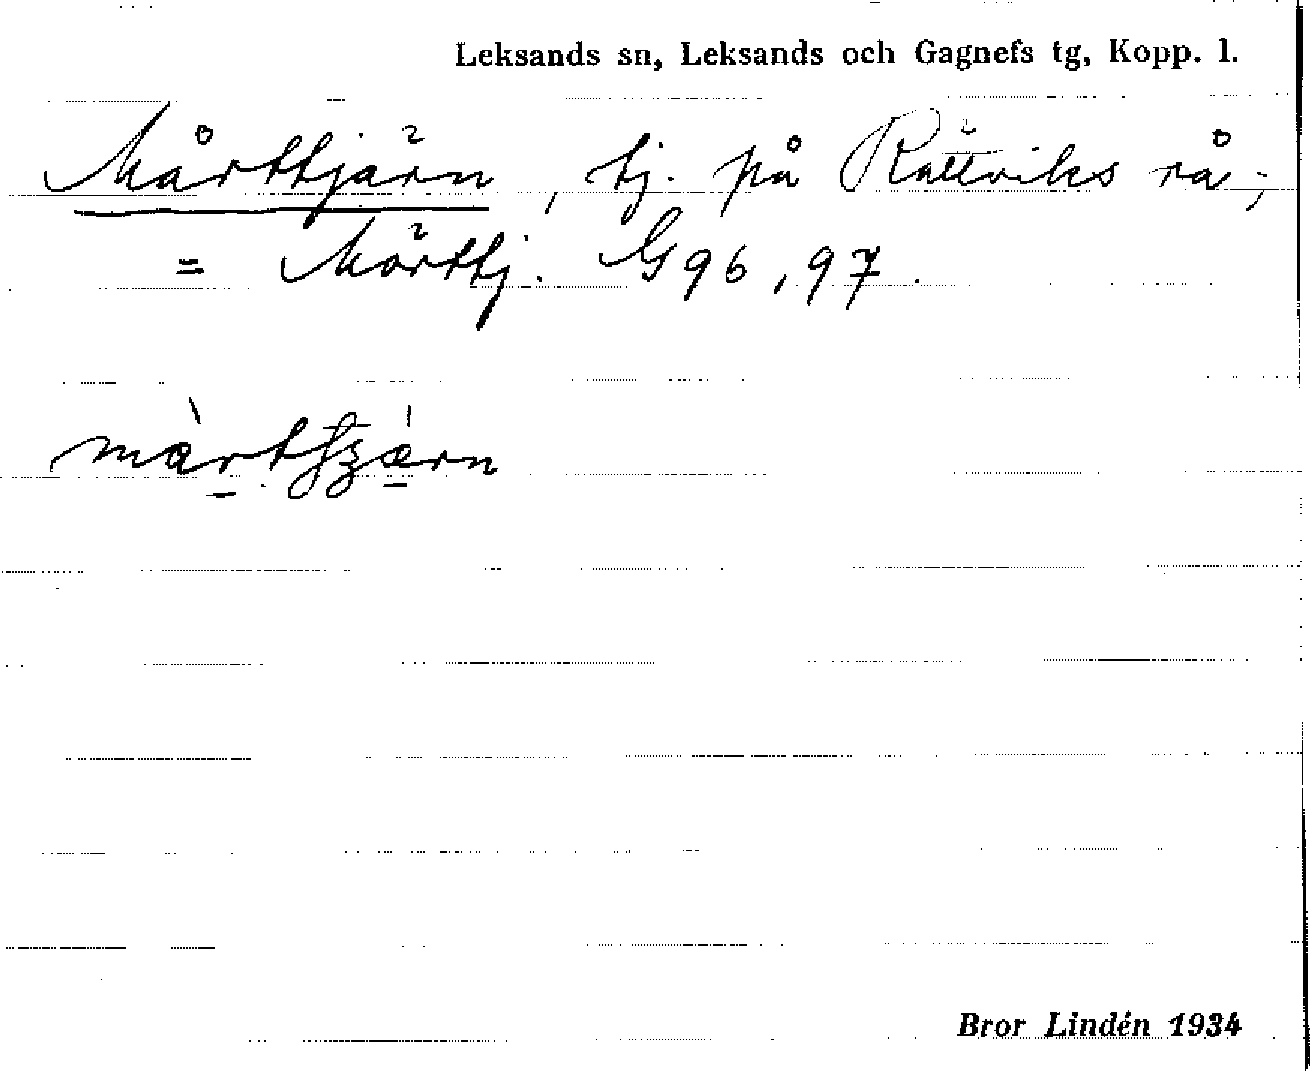 Leksands sn, Leksands och Gagnefs tg, Kopp. l.
Mårttjärn, tj. på Rättviks rå;
= Mörttj. G 96, 97.
Bror Lindén 1934